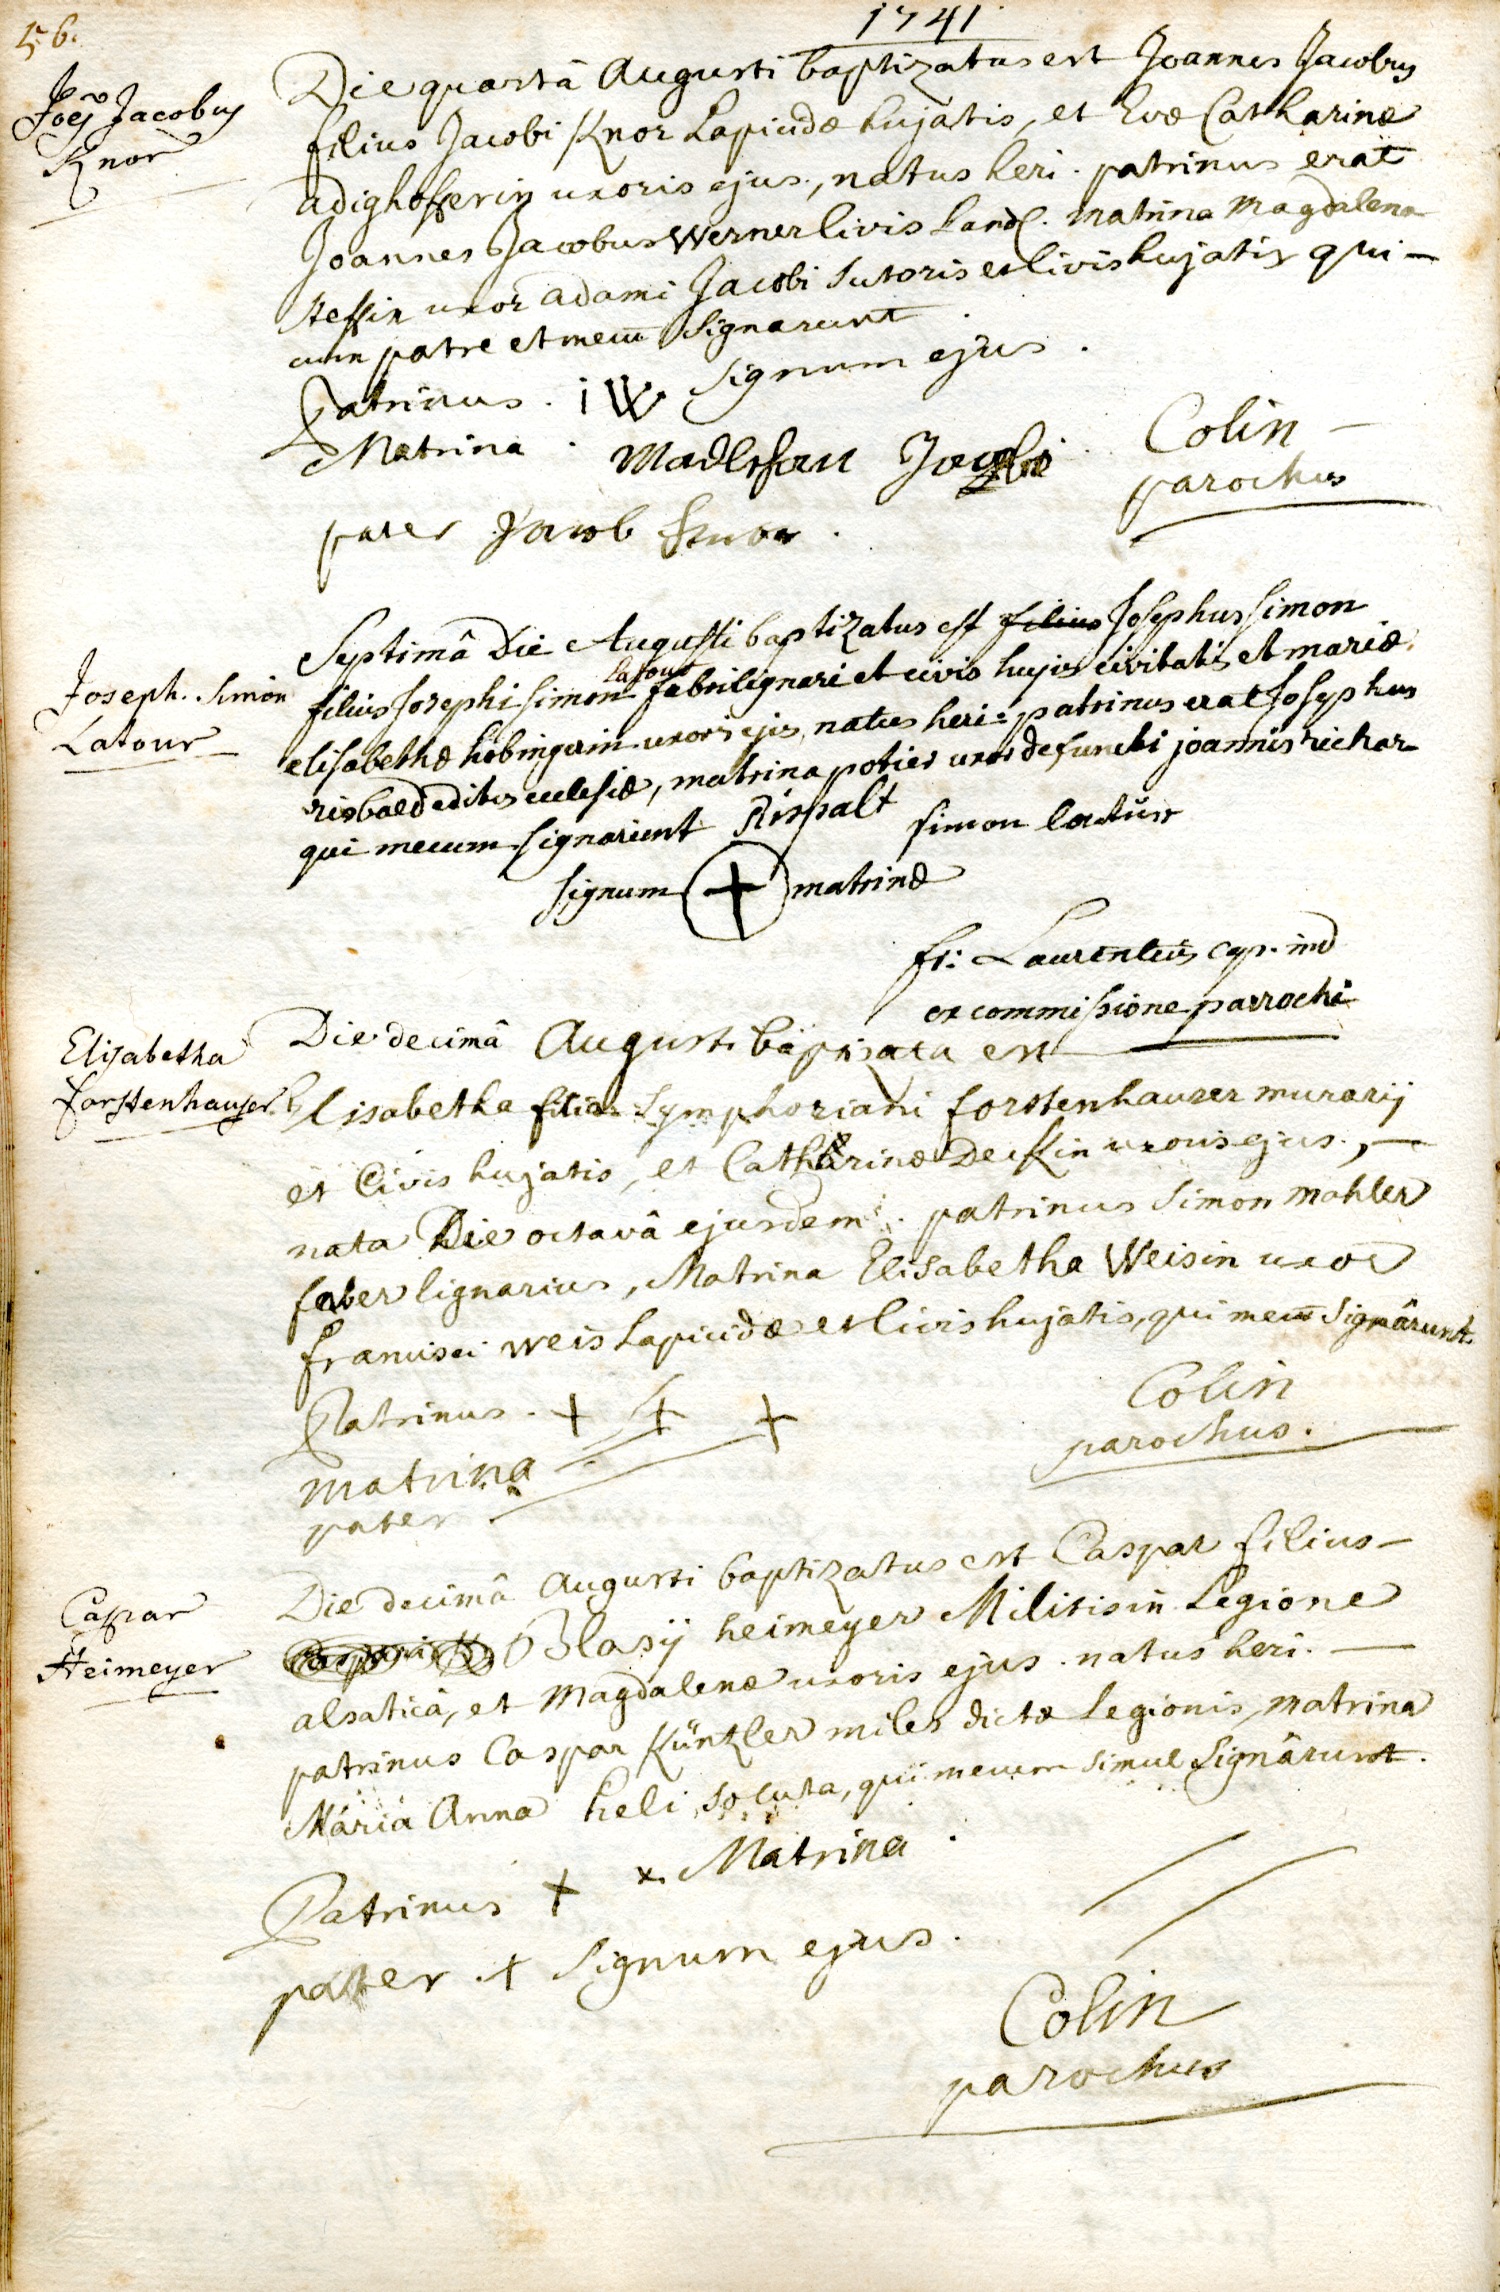 56.
1741
Joēs Jacobus
Knor
Die quartâ Augusti baptizatus est Joannes Jacobus
filius Jacobi Knor Lapicidæ hujatis, et Evæ Catharinæ
adighofferin uxoris ejus, natus heri. patrinus erat
Joannes Jacobus Werner Civis Land. matrina Magdalena
steffin uxor adami Jacobi Sutoris et Civis hujatis qui -
cum patre et mecū signarunt
Patrinus. i W signum ejus.
Matrina.
Colin -
parochus
pater Jacob Knor.
Joseph. Simon
Latour
Septimâ Die Augusti baptizatus est filius Josephus simon
Latour
filius Josephi simon fabrilignari et civis hujus civitatis et mariæ
elisabethæ hobingerin uxoris ejus, natus heri: patrinus erat Josephus
risbald editus ecclesiæ, matrina potier uxor defuncti joannis richar
qui mecum signarunt Rispalt simon latur
signum + matrinæ
fr: Laurentius cap. ind
ex commissione parrochi
Elisabetha
forstenhauser
Die decimâ Augusti baptisata est
Elisabetha filia Symphoriani forstenhauser murarij
et Civis hujatis, et Catharinæ Deckin uxoris ejus, -
nata Die octavâ ejusdem. patrinus Simon mahler
faber lignarius, Matrina Elisabetha Weisin uxor
francisci weis Lapicidæ et Civis hujatis, qui mecū signârunt.
Patrinus. + + +
matrina
pater
Colin
parochus.
Caspar
Heimeyer
Die decimâ Augusti baptizatus est Caspar filius -
Blasij heimeyer Militis in Legione
alsaticâ, et Magdalenæ uxoris ejus. natus heri. -
patrinus Caspar Küntzler miles dictæ Legionis, matrina
Maria Anna heli soluta, qui mecum simul signârunt.
Patrinus + x. Matrina.
pater. + signum ejus.
Colin
parochus